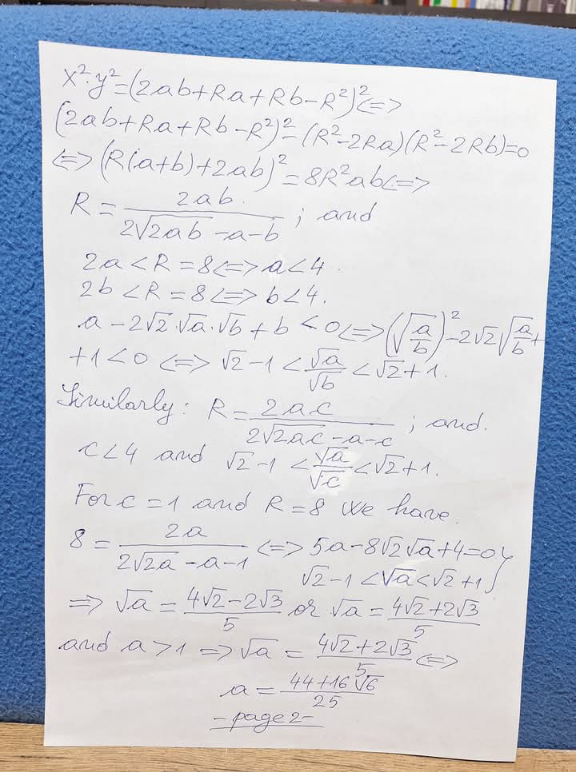 x²·y²=(2ab+Ra+Rb-R²)²⇔
(2ab+Ra+Rb-R²)²-(R²-2Ra)(R²-2Rb)=0
⇔(R(a+b)+2ab)²=8R²ab⇔
R=2ab/(2√2ab-a-b); and
2a<R=8⇔a<4.
2b<R=8⇔b<4.
a-2√2·√a·√b+b<0⇔(√(a/b))²-2√2√(a/b)+
+1<0⇔√2-1<√a/√b<√2+1.
Similarly: R=2ac/(2√2ac-a-c); and.
c<4 and √2-1<√a/√c<√2+1.
For c=1 and R=8 we have.
8=2a/(2√2a-a-1)⇔5a-8√2√a+4=0
√2-1<√a<√2+1}
⇒√a=(4√2-2√3)/5 or √a=(4√2+2√3)/5
and a>1⇒√a=(4√2+2√3)/5⇔
a=(44+16√6)/25
-page 2-